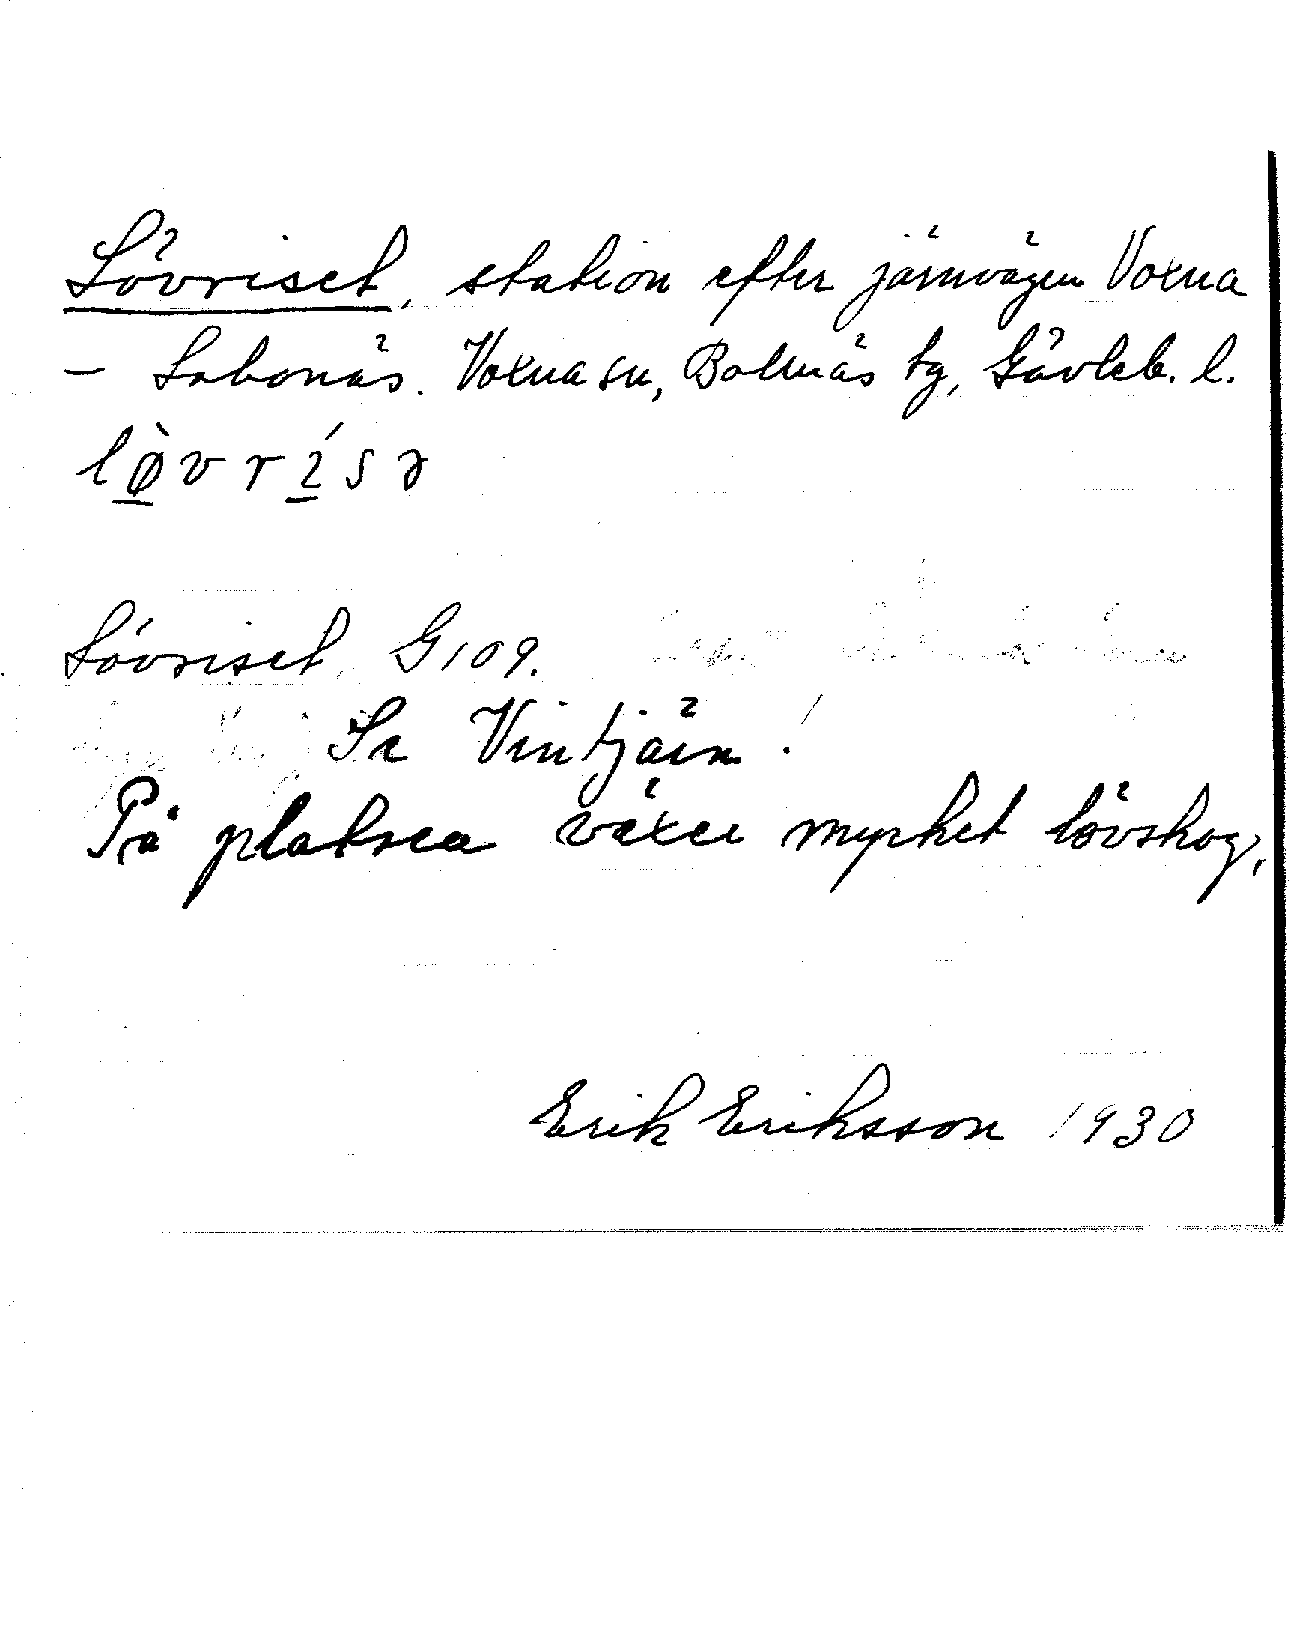 Lövriset, station efter järnvägen Voxna
– Lobonäs. Voxna sn, Bolnäs tg, Gävleb. l.
lø̀vrísə
Lövriset, G109.
Se Vintjärn!
På platsen växer mycket lövskog,
Erik Eriksson 1930